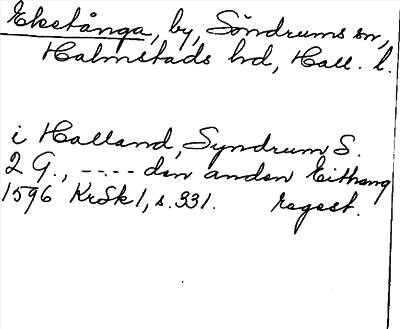 Ekstånga, by, Söndrums sn,
Halmstads hd, Hall. l.
i Halland, Syndrum S.
2 G., ---- den anden Eithang
1596 KrSk 1, s. 331. regest.